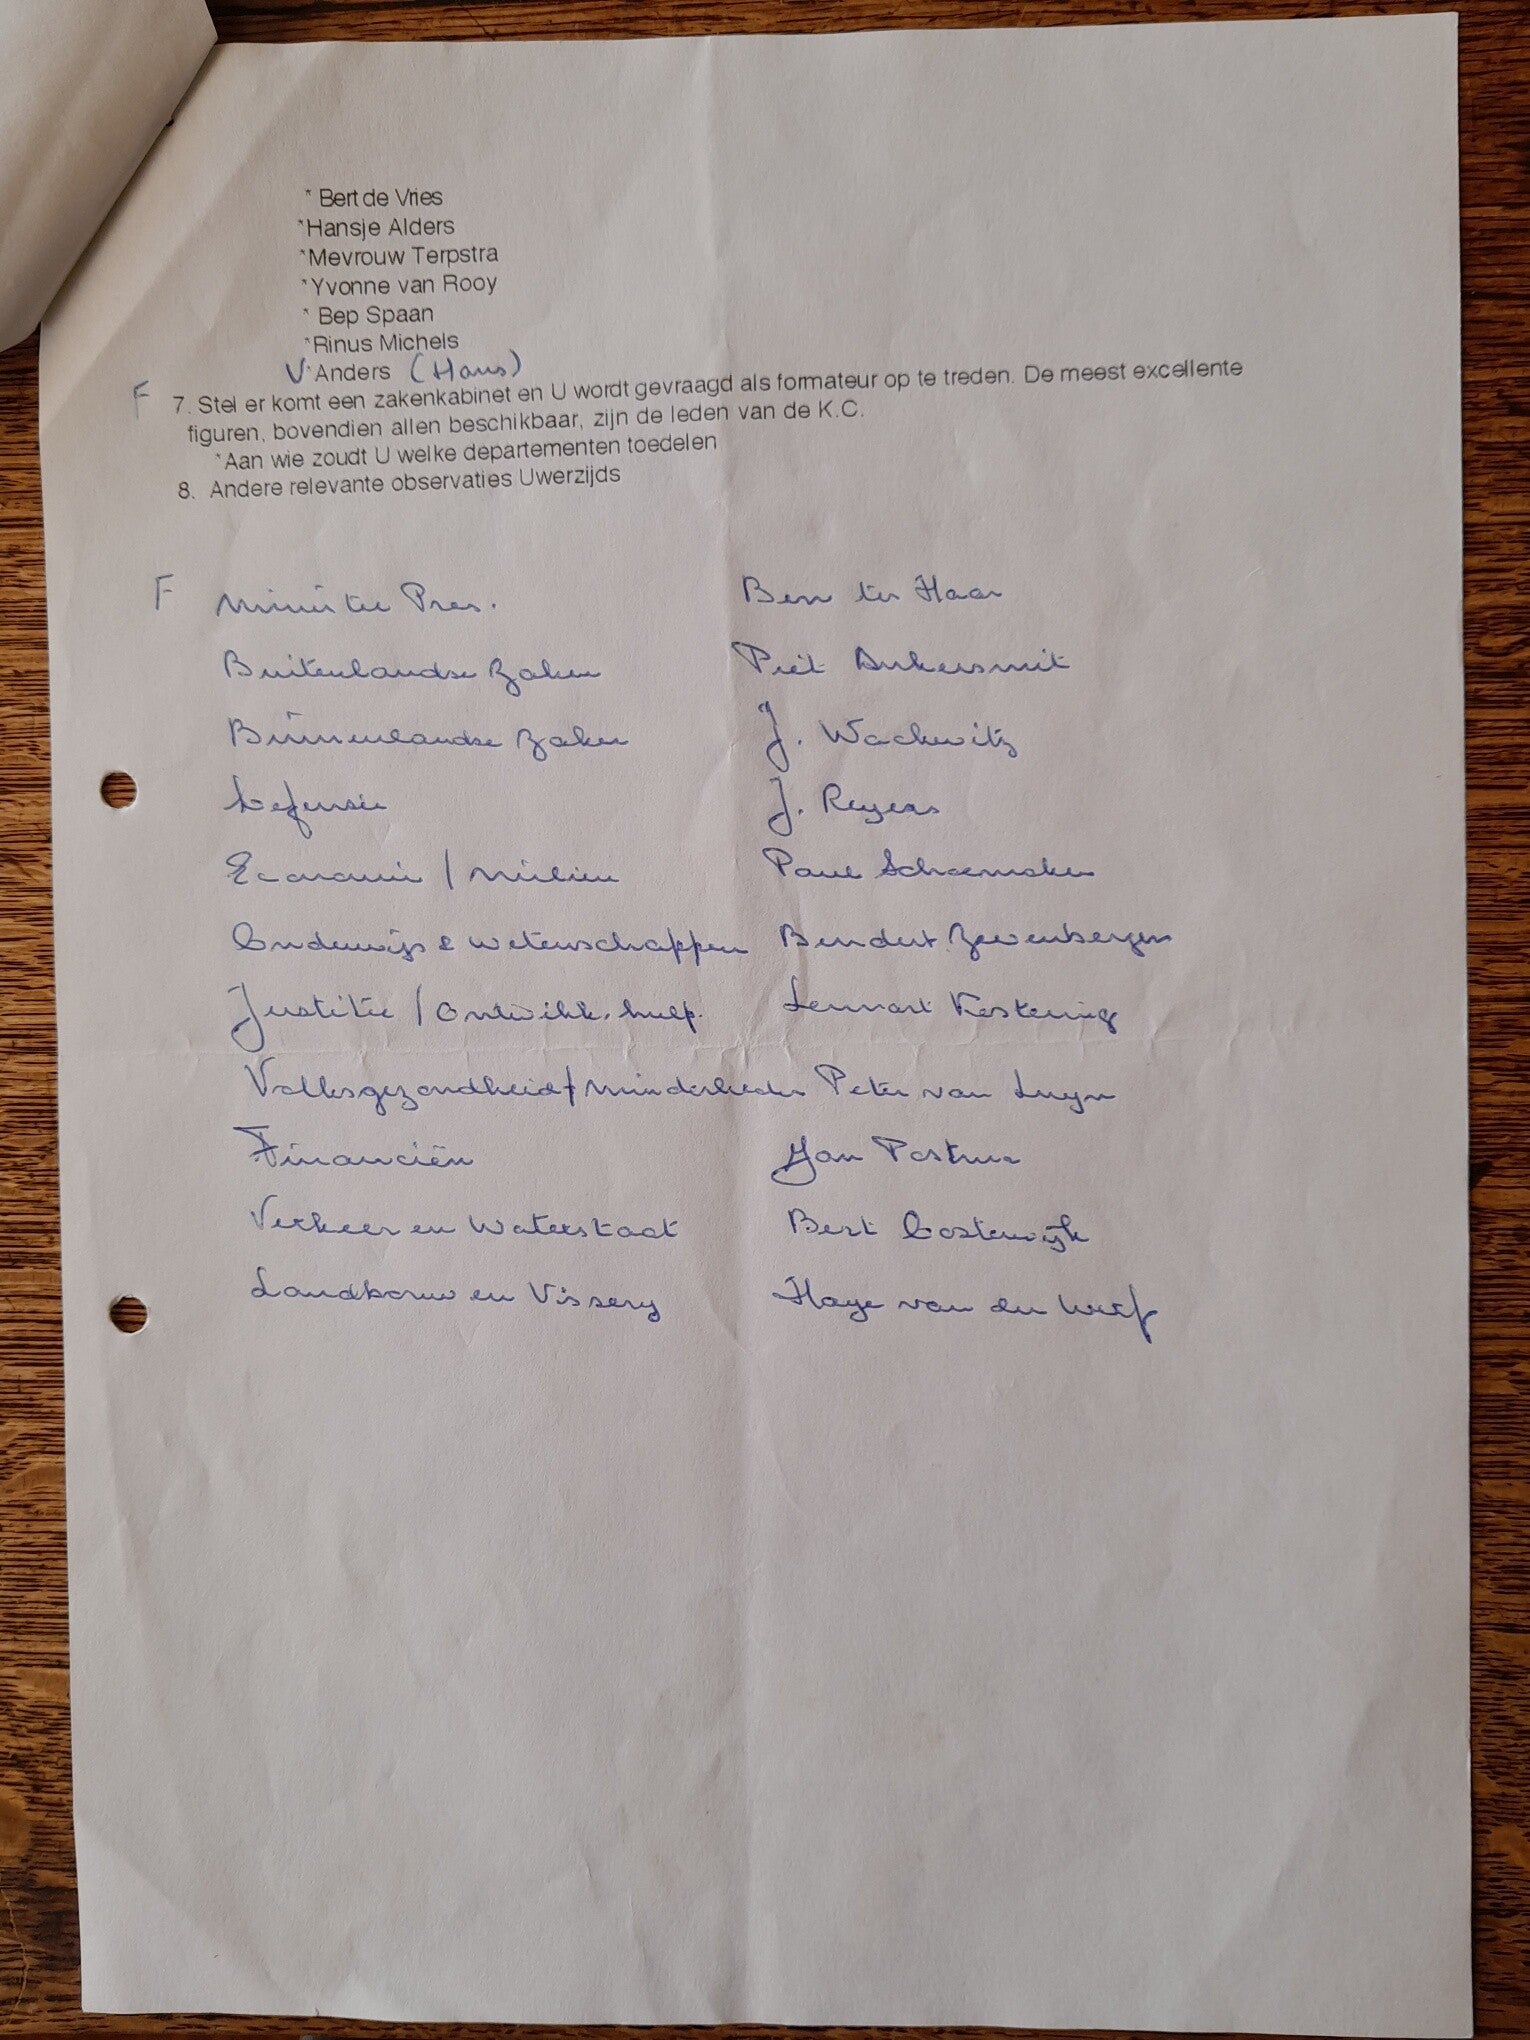 * Bert de Vries
*Hansje Alders
*Mevrouw Terpstra
*Yvonne van Rooy
* Bep Spaan
*Rinus Michels
V *Anders (Hans)
F 7. Stel er komt een zakenkabinet en U wordt gevraagd als formateur op te treden. De meest excellente
figuren, bovendien allen beschikbaar, zijn de leden van de K.C.
*Aan wie zoudt U welke departementen toedelen
8. Andere relevante observaties Uwerzijds
F Minister Pres. Ben ter Haar
Buitenlandse Zaken Piet Ankersmit
Binnenlandse Zaken J. Wackwitz
Defensie J. Reyers
Economie / Milieu Paul Schoemaker
Onderwijs & Wetenschappen Bendert Zevenbergen
Justitie / Ontwikk. hulp. Lennart Kestering
Volksgezondheid / Minderheden Peter van Luyn
Financiën Jan Postma
Verkeer en Waterstaat Bert Oosterwijk
Landbouw en Visserij Haye van der Werf